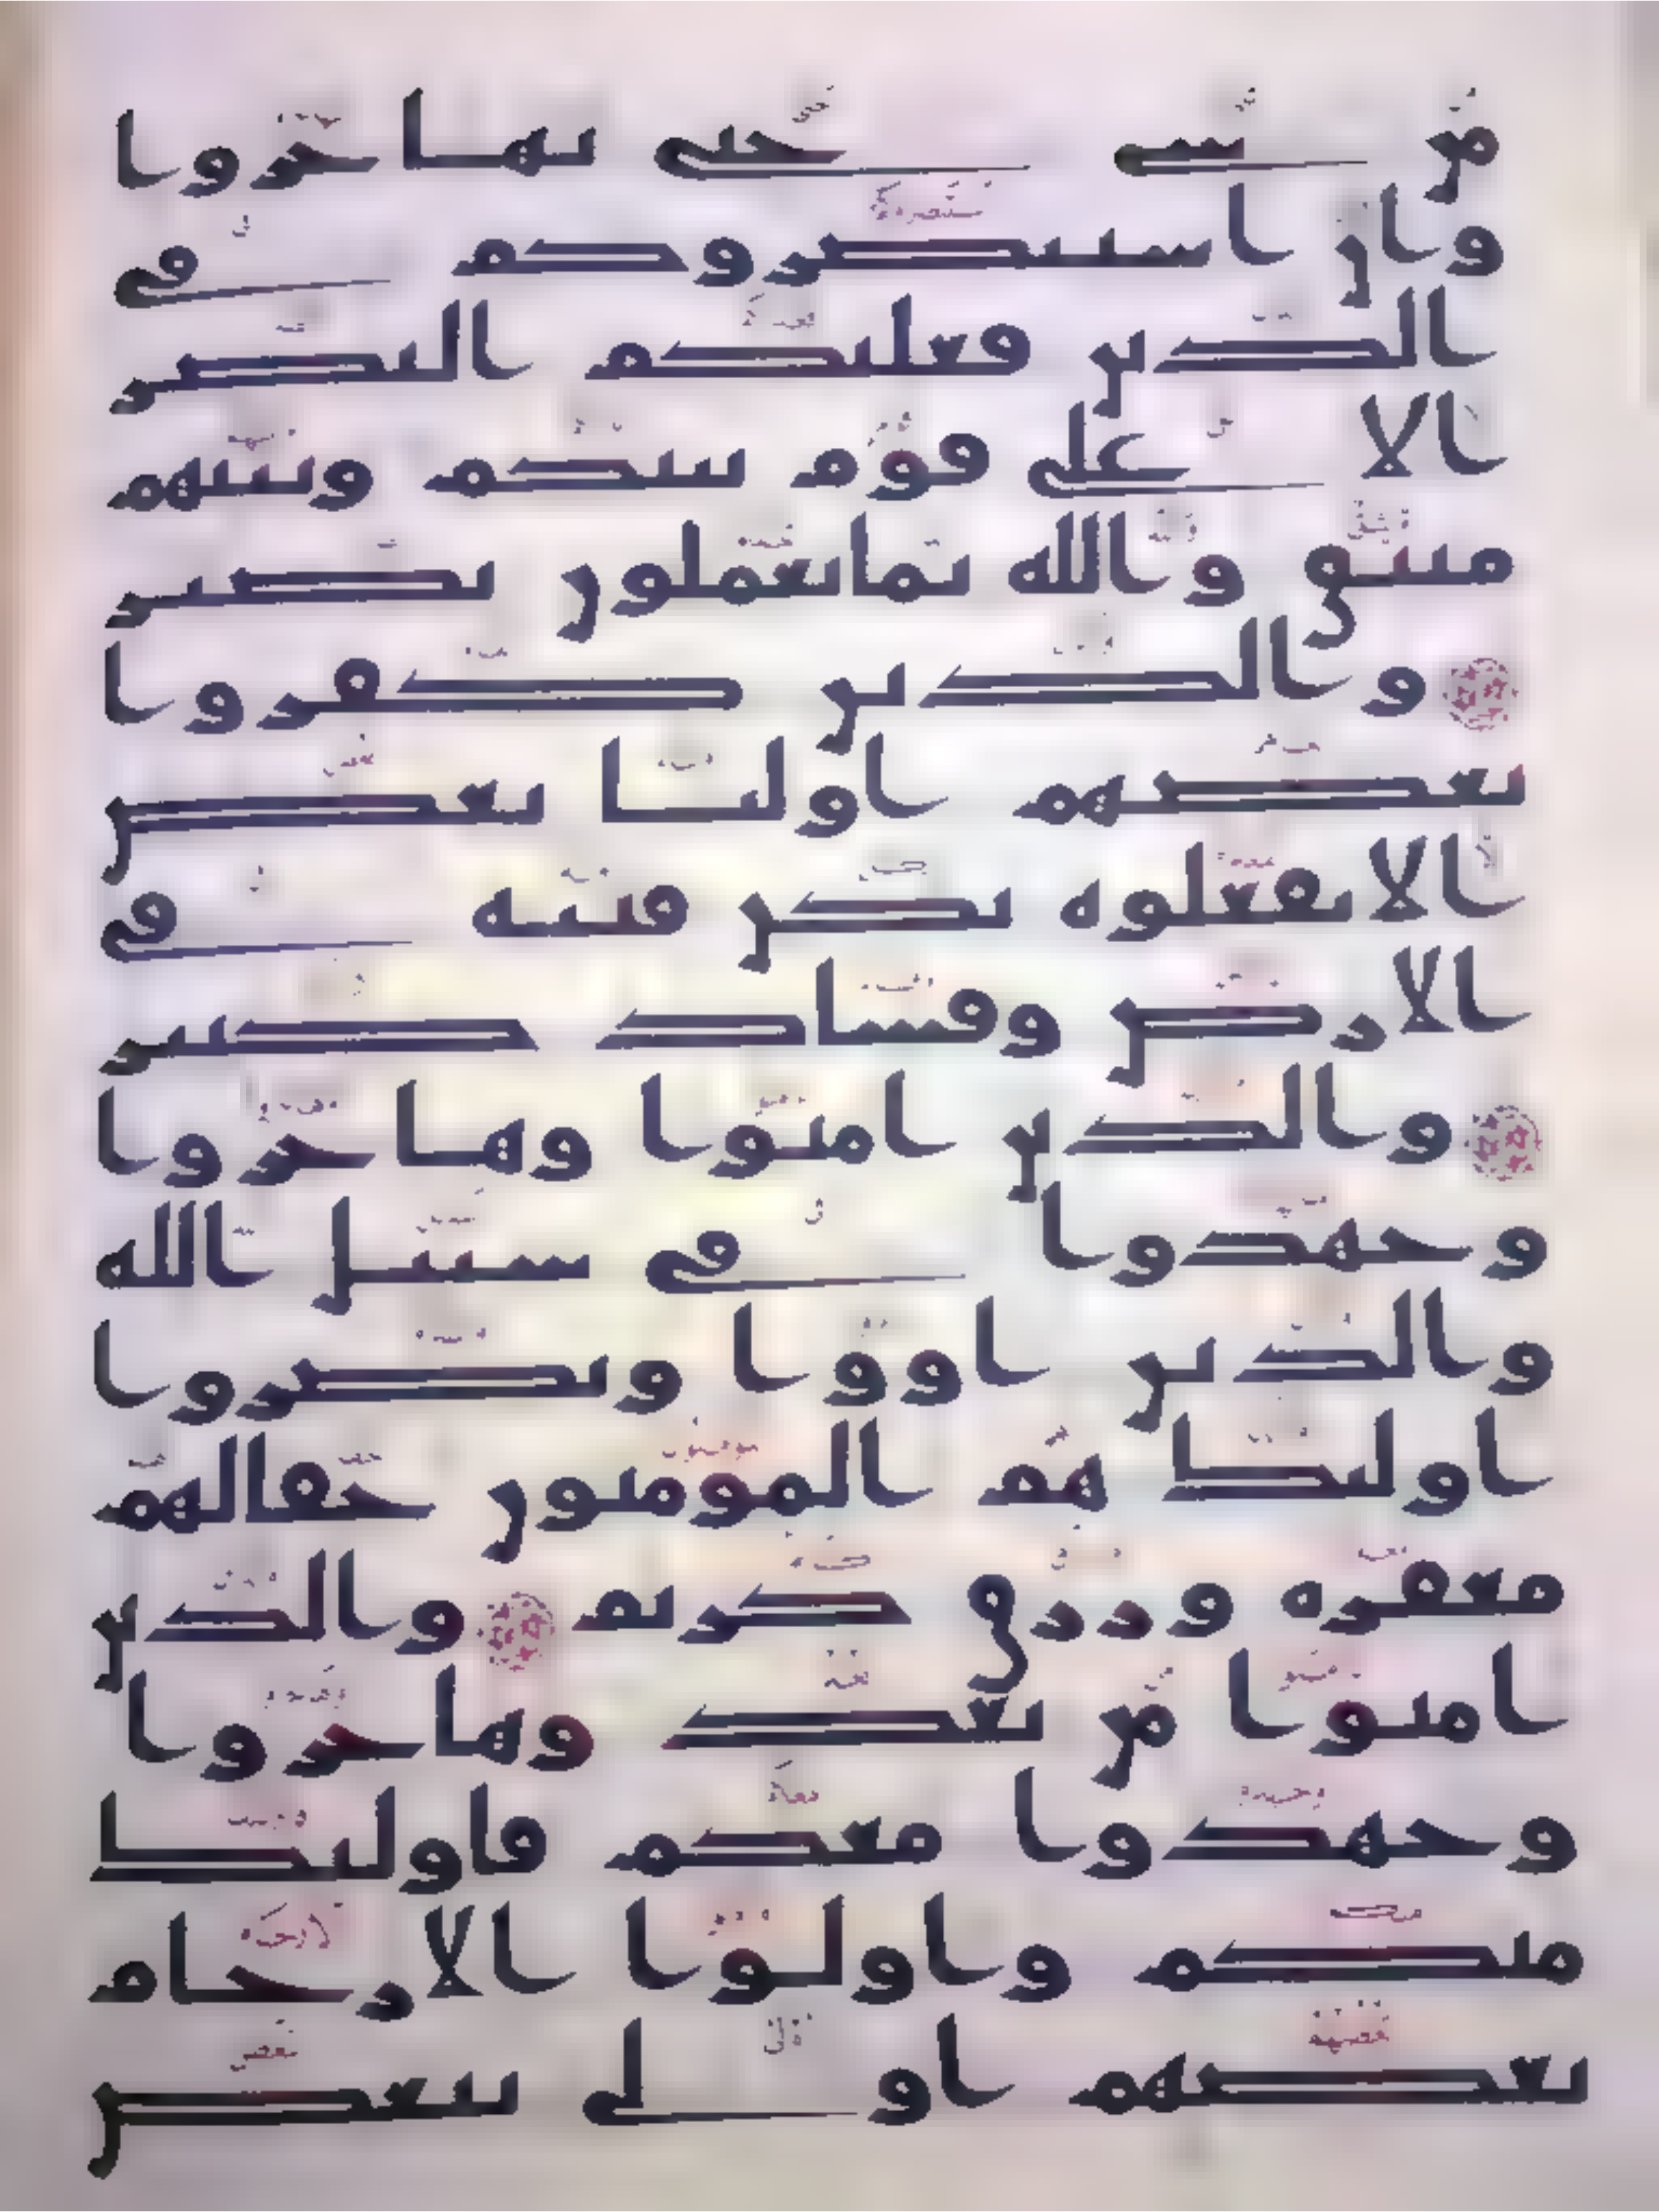 من شى حتى يهاجروا
وان استنصروكم فى
الدين فعليكم النصر
الا على قوم بينكم وبينهم
ميثق والله بما تعملون بصير
والذين كفروا
بعضهم اوليا بعض
الا تفعلوه تكن فتنه فى
الارض وفساد كبير
والذين امنوا وهاجروا
وجهدوا فى سبيل الله
والذين اووا ونصروا
اوليك هم المومنون حقا لهم
مغفره ورزق كريم والذين
امنوا من بعد وهاجروا
وجهدوا معكم فاوليك
منكم واولوا الارحام
بعضهم اولى ببعض